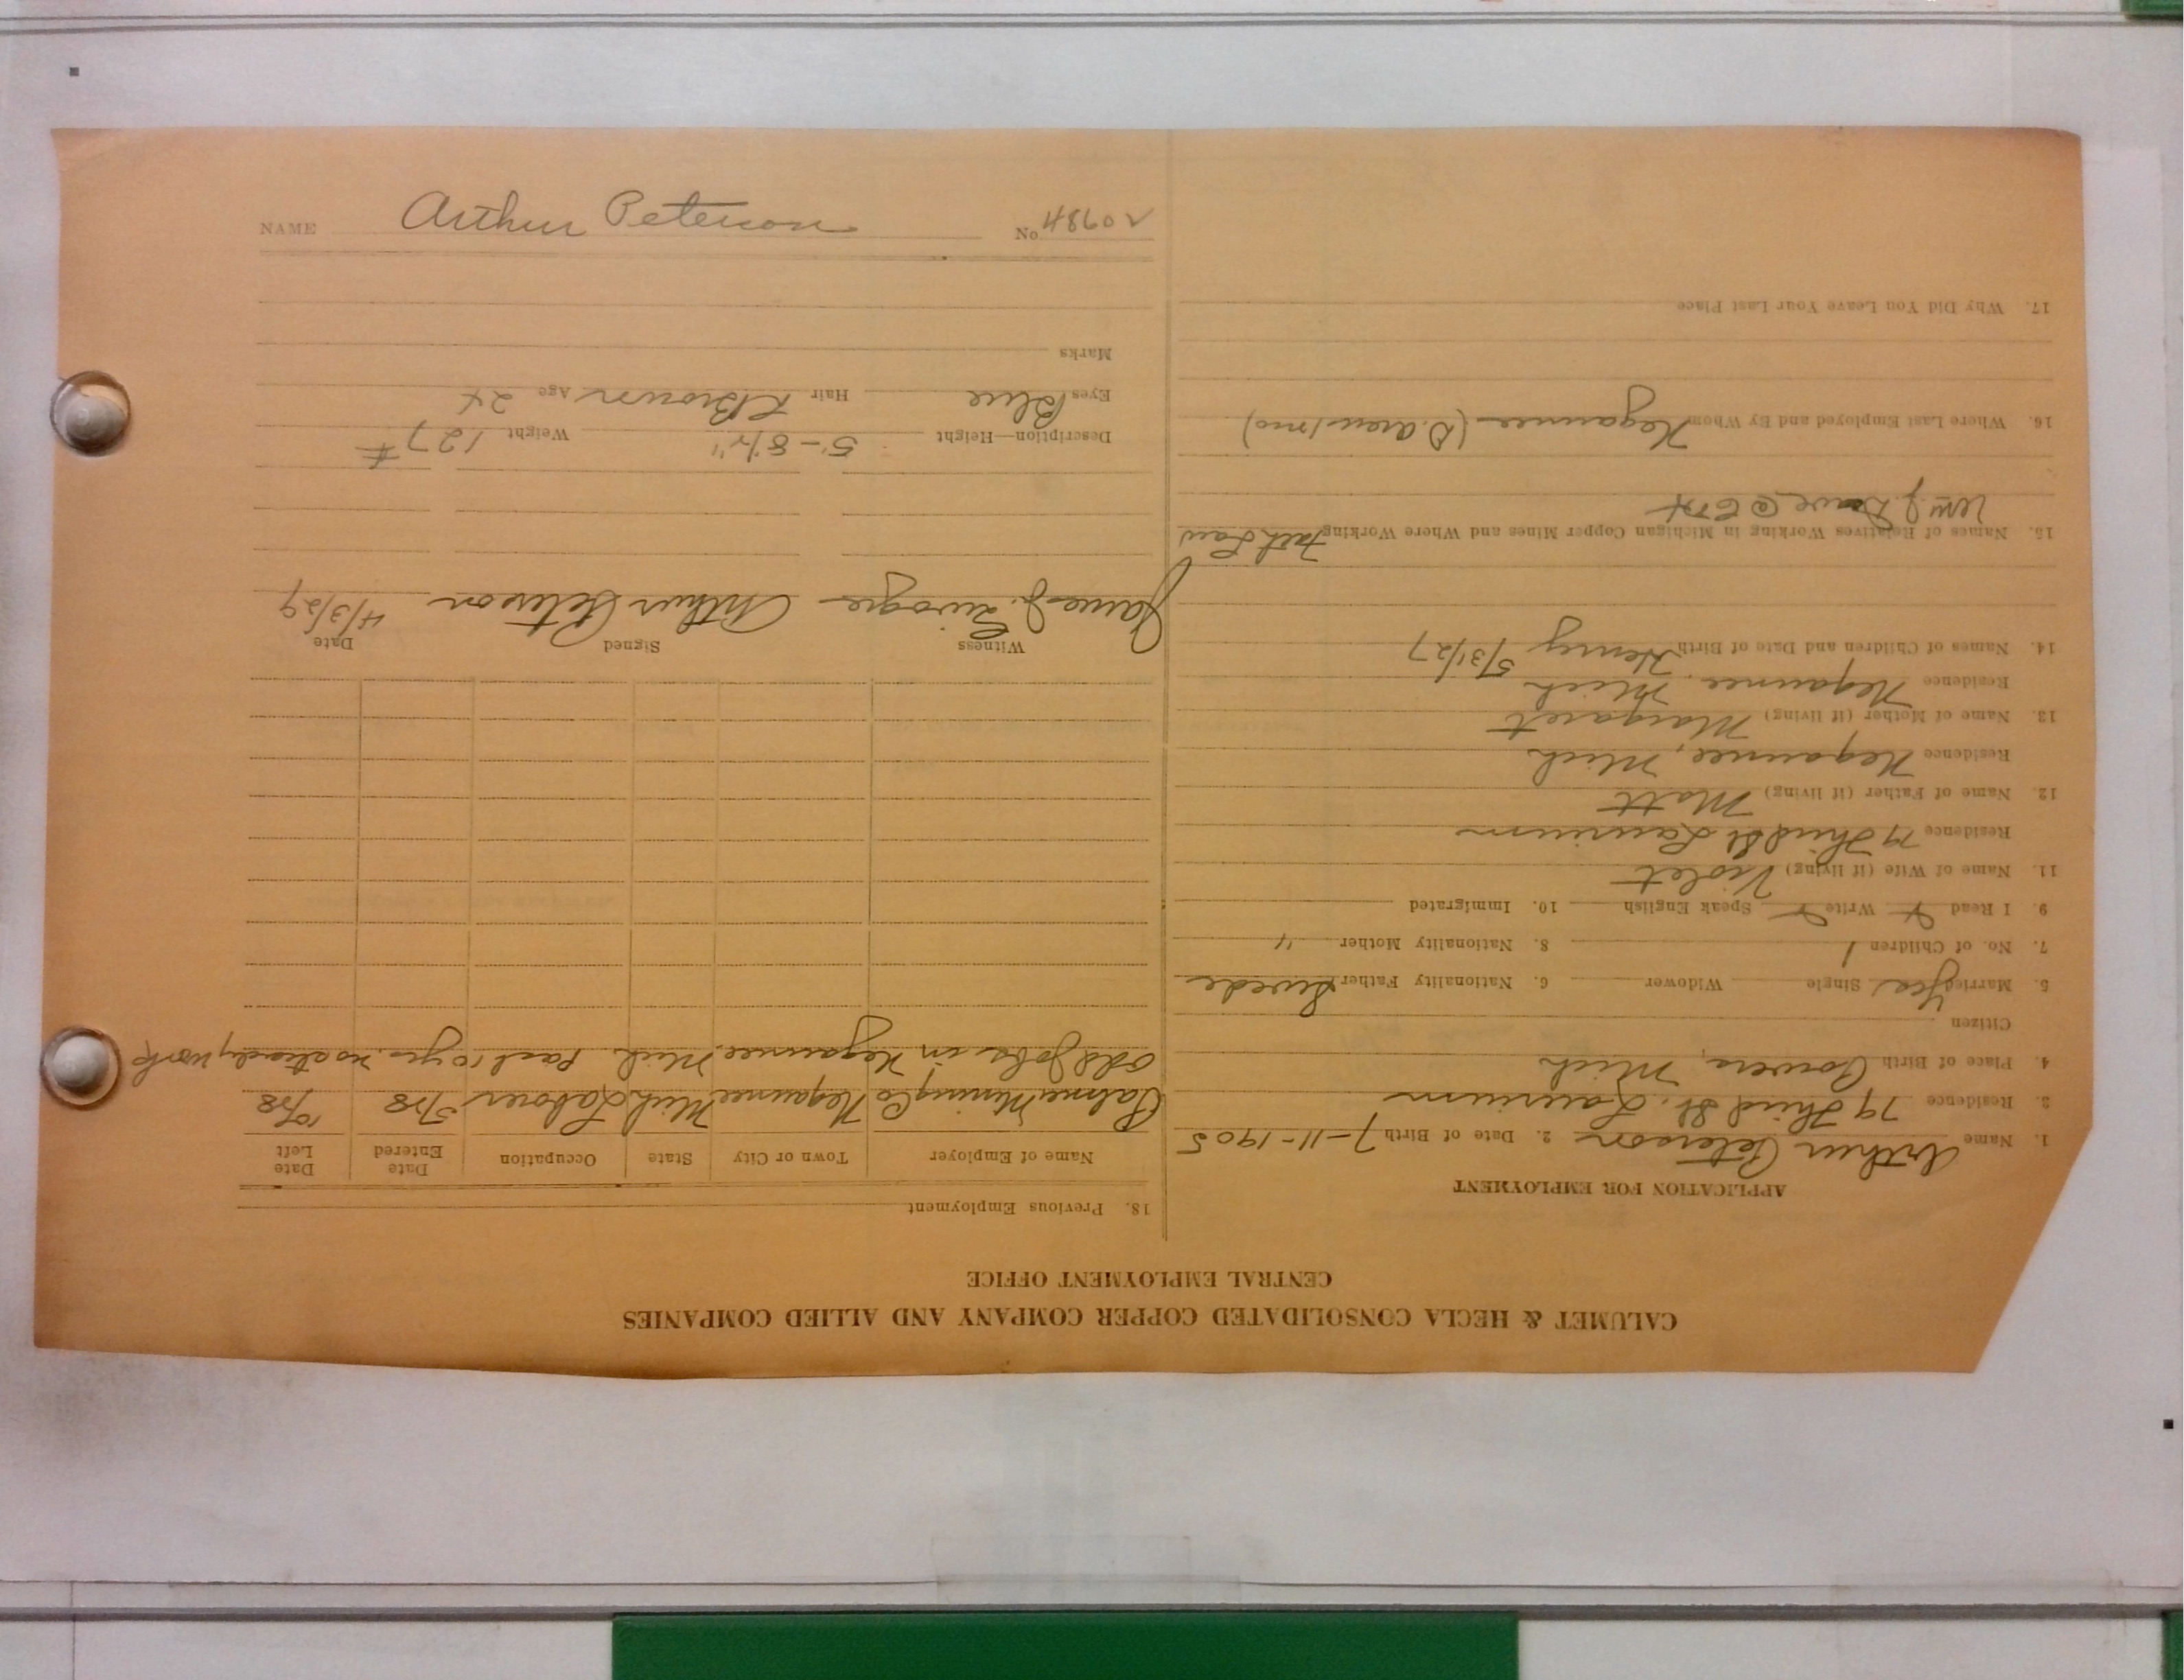 CALUMET & HECLA CONSOLIDATED COPPER COMPANY AND ALLIED COMPANIES
CENTRAL EMPLOYMENT OFFICE
APPLICATION FOR EMPLOYMENT
1. Name Arthur Peterson 2. Date of Birth 7-11-1905
3. Residence 79 Third St. Laurium
4. Place of Birth Powers, Mich
Citizen
5. Married Yes Single Widower 6. Nationality Father Swede
7. No. of Children 1 8. Nationality Mother "
9. I Read Write Speak English 10. Immigrated
11. Name of Wife (if living) Violet
Residence 79 Third St Laurium
12. Name of Father (if living) Matt
Residence Negaunee, Mich
13. Name of Mother (if living) Margaret
Residence Negaunee, Mich
14. Names of Children and Date of Birth Henry 5/31/27
15. Names of Relatives Working in Michigan Copper Mines and Where Working Fath Law
Wm J. @
16. Where Last Employed and By Whom Negaunee
17. Why Did You Leave Your Last Place
18. Previous Employment
Name of Employer Town or City State Occupation Date Entered Date Left
Palmer Mining Co Negaunee Mich Laborer 5/28 10/28
Odd Jobs in Negaunee, Mich past 10 yrs. no steady work
Witness Signed Date
James J. Arthur Peterson 4/3/29
Description—Height 5'-8½" Weight 127#
Eyes Blue Hair Brown Age 24
Marks
NAME Arthur Peterson No 48602